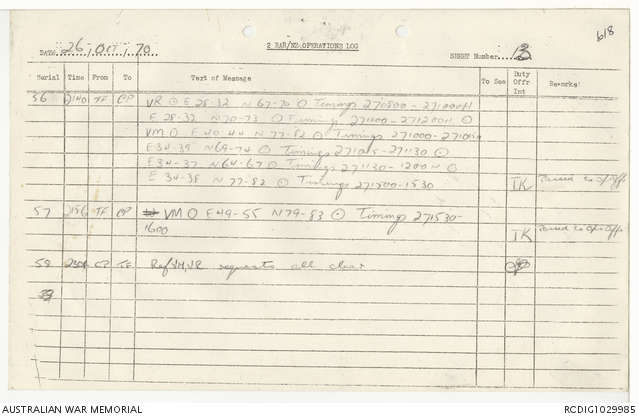 618
DATE 26/OCT/70 2 RAR/NZ OPERATIONS LOG SHEET Number 13
Serial Time From To Text of Message To See Duty Offr Int Remarks
56 2140 TF CP VR ⊙ E 28-32 N 67-70 ⊙ Timings 270800-271000H
E 28-32 N 70-73 ⊙ Timings 271100-271200H ⊙
VM ⊙ E 40-44 N 77-82 ⊙ Timings 271000-
E 34-39 N 69-74 ⊙ Timings 271015-271130 ⊙
E 34-37 N 64-67 ⊙ Timings 271130-1200H ⊙
E 34-38 N 77-82 ⊙ Timings 271500-1530 TK
57 TF CP VM ⊙ E 49-55 N 79-83 ⊙ Timings 271530-
1600 TK
58 Ref VM, VR requests all clear
AUSTRALIAN WAR MEMORIAL RCDIG1029985